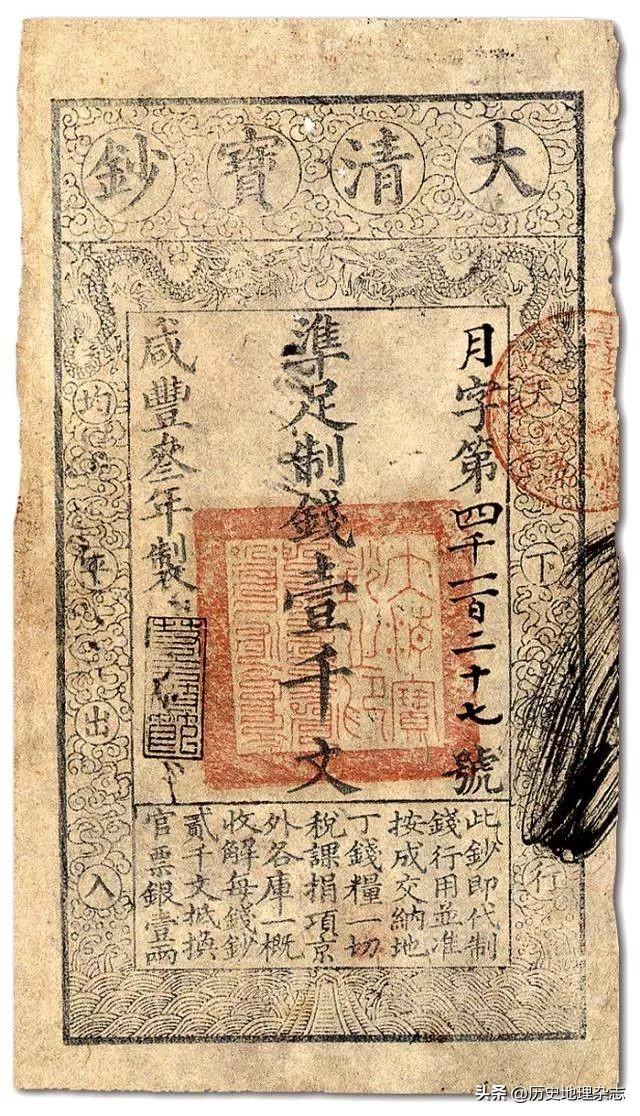 大清寶鈔
天下行
月字第四千一百二十七號
準足制錢壹千文
咸豐叁年製
均平出入
此鈔即代制
錢行用並准
按成交納地
丁錢糧一切
稅課捐項京
外各庫一概
收解每錢鈔
貳千文抵換
官票銀壹兩
头条 @历史地理杂志